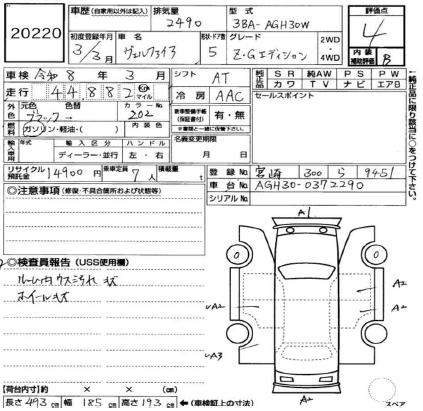 20220
車歴 (自家用以外は記入) 排気量 型式 評価点
2490 3BA-AGH30W 4
初度登録年月 車名 形状・ドア数 グレード 2WD・4WD 内装補助評価
3/3月 ヴェルファイア 5 Z・Gエディション B
車検 令和 8年 3月 シフト AT 純正品 SR 純AW PS PW
カワ TV ナビ エアB
走行 44882 km マイル 冷房 AAC セールスポイント
外色 元色 色替 カラーNo.
ブラック→ 202
新車整備手帳(保証書付) 有・無
※書類と一緒に保管下さい。
燃料 ガソリン・軽油・( ) 内装色 名義変更期限
月 日
輸入車用 年式 輸入区分 ハンドル
ディーラー・並行 左・右
リサイクル預託金 14900円 乗車定員 7人 積載量 t
登録No. 宮崎 300 ら 9451
車台No. AGH30-0372290
シリアルNo.
←純正品に限り該当に○をつけて下さい。
◎注意事項 (修復・不具合箇所および状態等)
◎検査員報告 (USS使用欄)
ルーム内ウス汚れ キズ
ホイールキズ
A1
A2
A2
A2
A3
A2
スペア
【荷台内寸】 × × (cm)
長さ 493 cm 幅 185 cm 高さ 193 cm ←(車検証上の寸法)